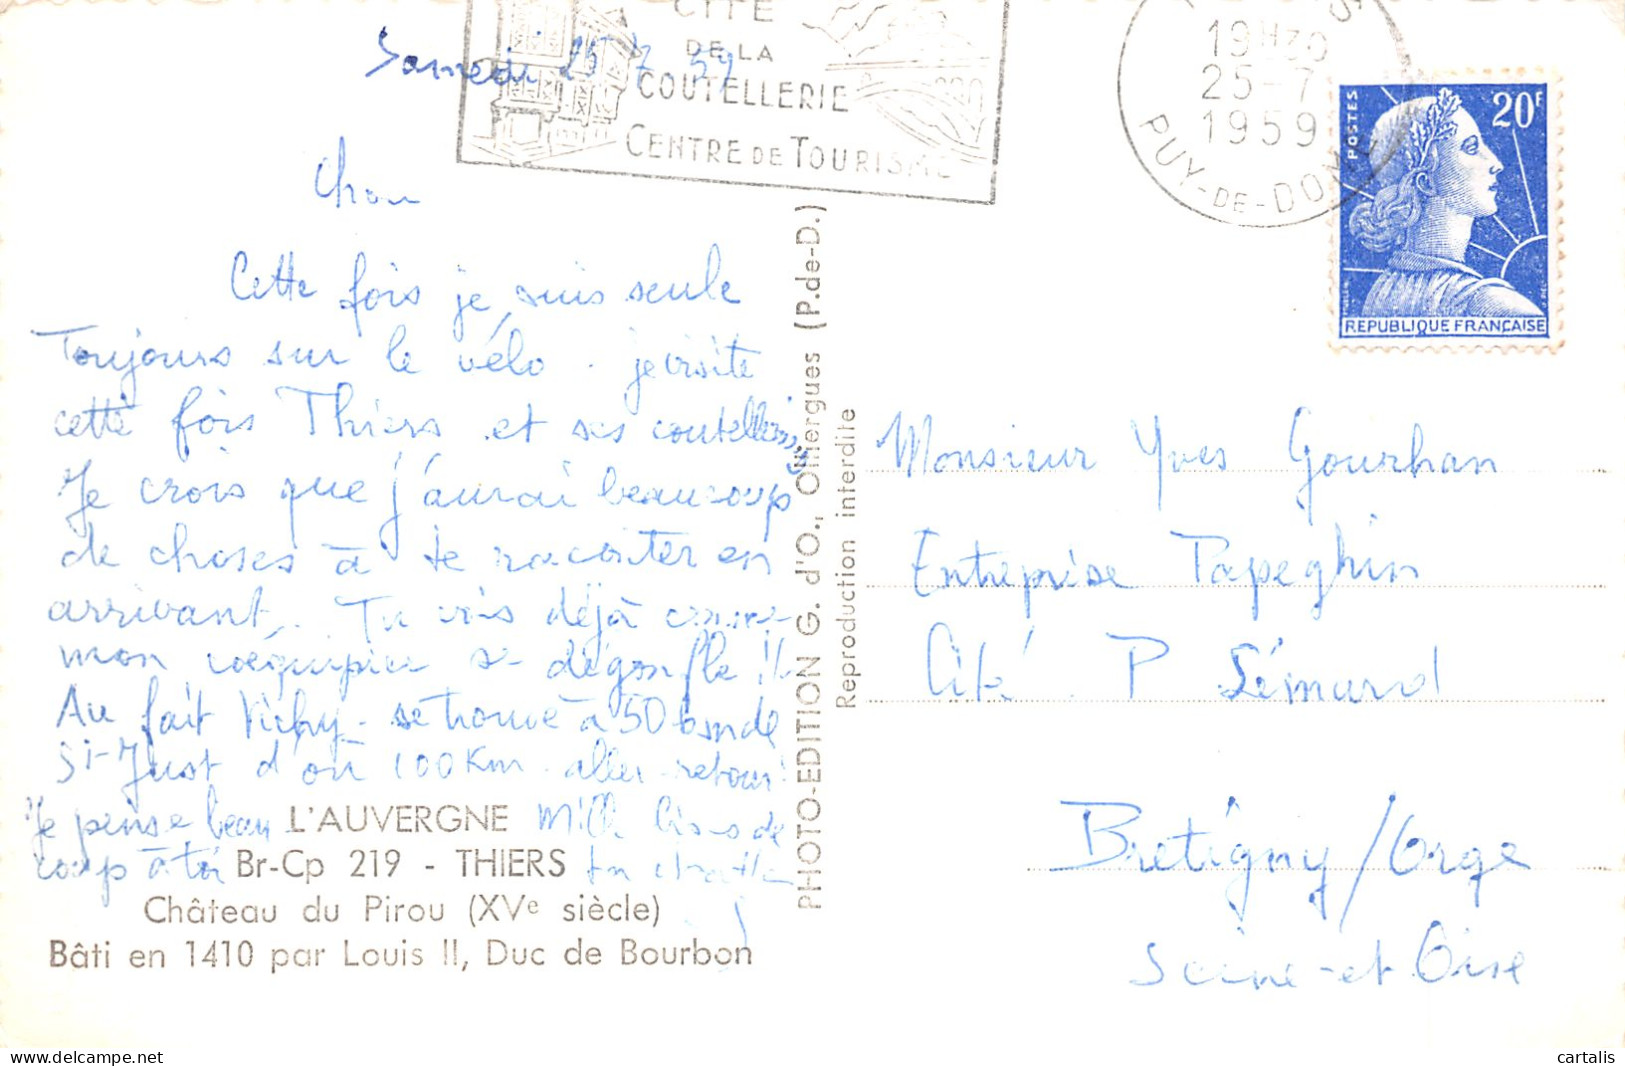 Samedi 25 7 59
CITE
DE LA
COUTELLERIE
CENTRE DE TOURISME
19H30
25-7
1959
PUY-DE-DOME
POSTES
20F
REPUBLIQUE FRANÇAISE
Chou
Cette fois je suis seule
Toujours sur le vélo. je visite
cette fois Thiers et ses coutelleries
Je crois que j'aurai beaucoup
de choses à te raconter en
arrivant. Tu vois déjà comme
mon coéquipier se dégonfle !!
Au fait Vichy se trouve à 50 km de
St-Just d'où 100 Km aller-retour
Je pense beau Mille bises de
coup à toi ta
L'AUVERGNE
Br-Cp 219 - THIERS
Château du Pirou (XVe siècle)
Bâti en 1410 par Louis II, Duc de Bourbon
PHOTO-EDITION G. d'O., Olliergues (P.-de-D.)
Reproduction interdite
Monsieur Yves Gourhan
Entreprise Papeghin
Cité P Sémard
Bretigny/Orge
Seine-et-Oise
cartalis